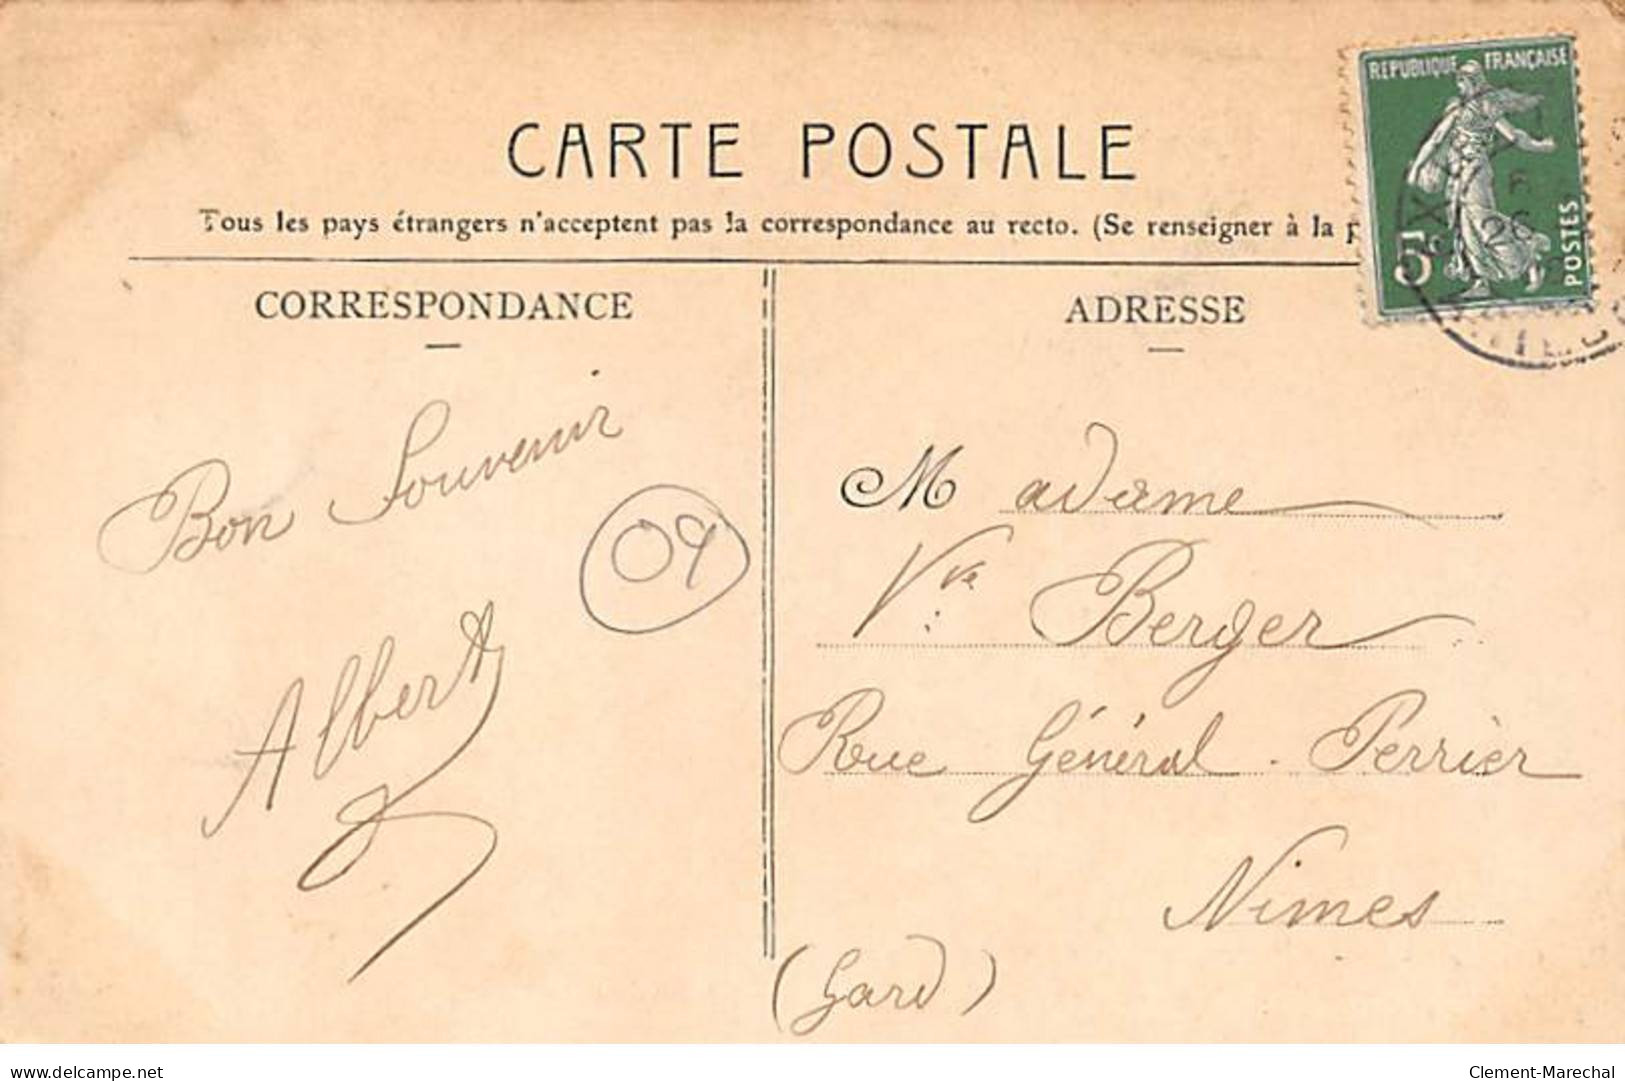 REPUBLIQUE FRANÇAISE
5c
POSTES
CARTE POSTALE
Tous les pays étrangers n'acceptent pas la correspondance au recto. (Se renseigner à la
CORRESPONDANCE
ADRESSE
Bon Souvenir
09
Albert
Madame
Vve Berger
Rue Général. Perrier
Nimes
(Gard)
delcampe.net
Clement-Marechal